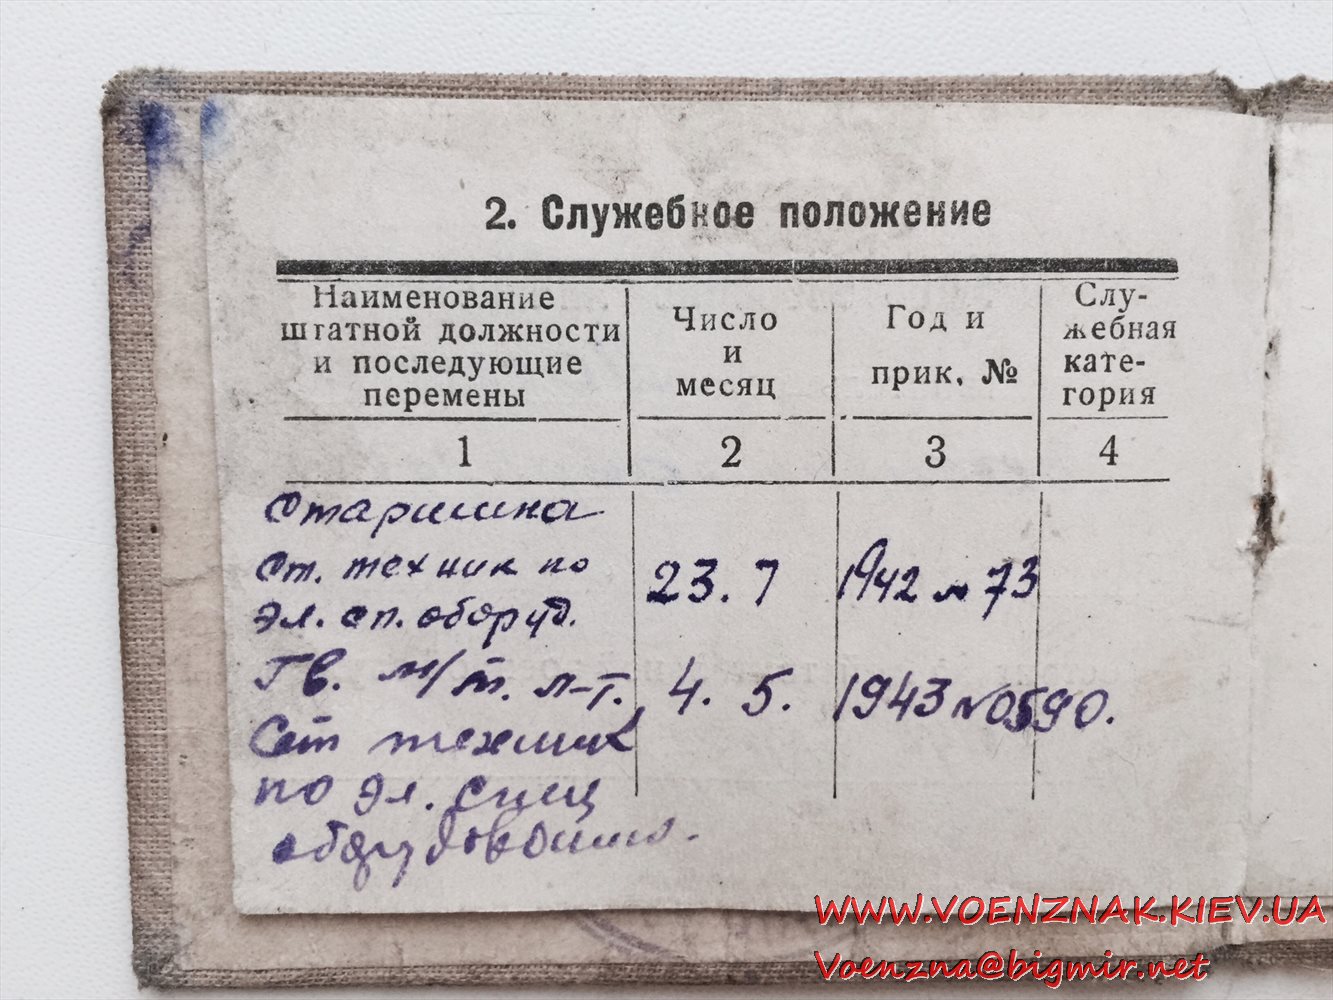 2. Служебное положение
Наименование штатной должности и последующие перемены
Число и месяц
Год и прик. №
Слу-жебная кате-гория
1 2 3 4
Старшина
Ст. техник по 23. 7 1942 № 73
эл. сп. оборуд.
Гв. м/т. л-т. 4. 5. 1943 №0590.
Ст техник
по эл. спец
оборудованию.
WWW.VOENZNAK.KIEV.UA
Voenzna@bigmir.net